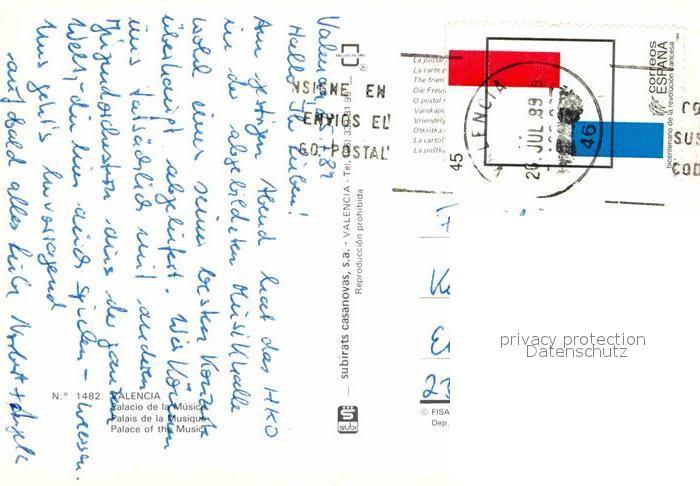 Valencia
Hallo Ihr Lieben!
Am gestrigen Abend hat das HKO
in der abgebildeten Musikhalle
wohl eines seiner besten Konzerte
überhaupt abgeliefert. Wir können
uns tatsächlich mit anderen
Jugendorchestern aus der ganzen
Welt, die hier auch spielen - messen.
Uns geht's hervorragend
auf bald alles Liebe Norbert + Angela
N.° 1482 VALENCIA
Palacio de la Música
Palais de la Musique
Palace of the Music
subirats casanovas, s.a. - VALENCIA - Tel.
Reproducción prohibida
subi
© FISA
Dep.
NSIGNE EN
ENVIOS EL
GO. POSTAL
VALENCIA
JUL 89
45
46
La postal
La carte p
The frien
Die Freu
O postal
Vanskap
Vriendely
Otkritka
La cartol
La postk
correos
ESPAÑA
bicentenario de la revolución francesa
CO
SUS
COD
23
privacy protection
Datenschutz